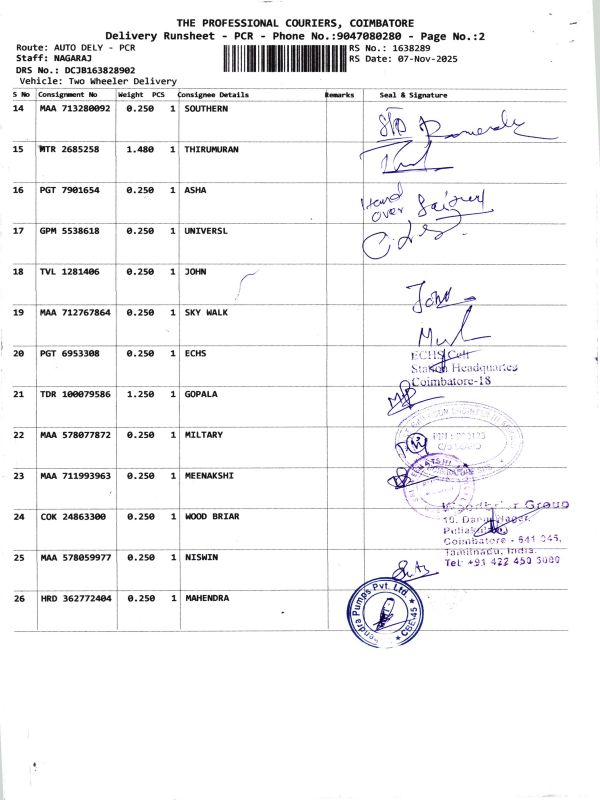 THE PROFESSIONAL COURIERS, COIMBATORE
Delivery Runsheet - PCR - Phone No.:9047080280 - Page No.:2
Route: AUTO DELY - PCR RS No.: 1638289
Staff: NAGARAJ RS Date: 07-Nov-2025
DRS No.: DCJB163828902
Vehicle: Two Wheeler Delivery
S No Consignment No Weight PCS Consignee Details Remarks Seal & Signature
14 MAA 713280092 0.250 1 SOUTHERN
15 MTR 2685258 1.480 1 THIRUMURAN
16 PGT 7901654 0.250 1 ASHA Hand over
17 GPM 5538618 0.250 1 UNIVERSL
18 TVL 1281406 0.250 1 JOHN John
19 MAA 712767864 0.250 1 SKY WALK
20 PGT 6953308 0.250 1 ECHS ECHS Cell
Station Headquartes
Coimbatore-18
21 TDR 100079586 1.250 1 GOPALA
22 MAA 578077872 0.250 1 MILTARY
23 MAA 711993963 0.250 1 MEENAKSHI
24 COK 24863300 0.250 1 WOOD BRIAR Woodbriar Group
Coimbatore - 641 045,
Tamilnadu, India.
Tel: +91 422 450 3000
25 MAA 578059977 0.250 1 NISWIN
26 HRD 362772404 0.250 1 MAHENDRA Pumps Pvt. Ltd. CBE-45